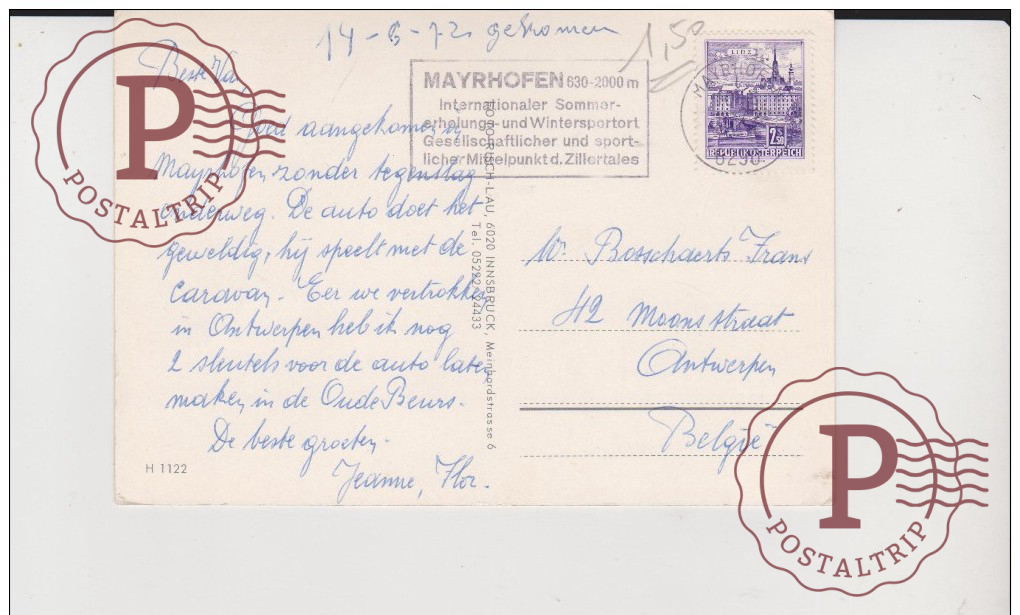 14-6-72 gekomen
1,50
Beste Va,
Goed aangekomen in
Mayrhofen zonder tegenslag
onderweg. De auto doet het
geweldig, hij speelt met de
caravan. Eer we vertrokken
in Antwerpen heb ik nog
2 sleutels voor de auto laten
maken in de Oude Beurs.
De beste groeten.
Jeanne, Flor.
H 1122
MAYRHOFEN 630-2000 m
Internationaler Sommer-
erholungs- und Wintersportort
Gesellschaftlicher und sport-
licher Mittelpunkt d. Zillertales
LINZ
2.50
REPUBLIK ÖSTERREICH
MAYRHOF
6290
-LAU, 6020 INNSBRUCK, Meinhardstrasse 6
Tel. 05222
4433
Bosschaerts Frans
42 Moonsstraat
Antwerpen
België
P
POSTALTRIP
P
POSTALTRIP